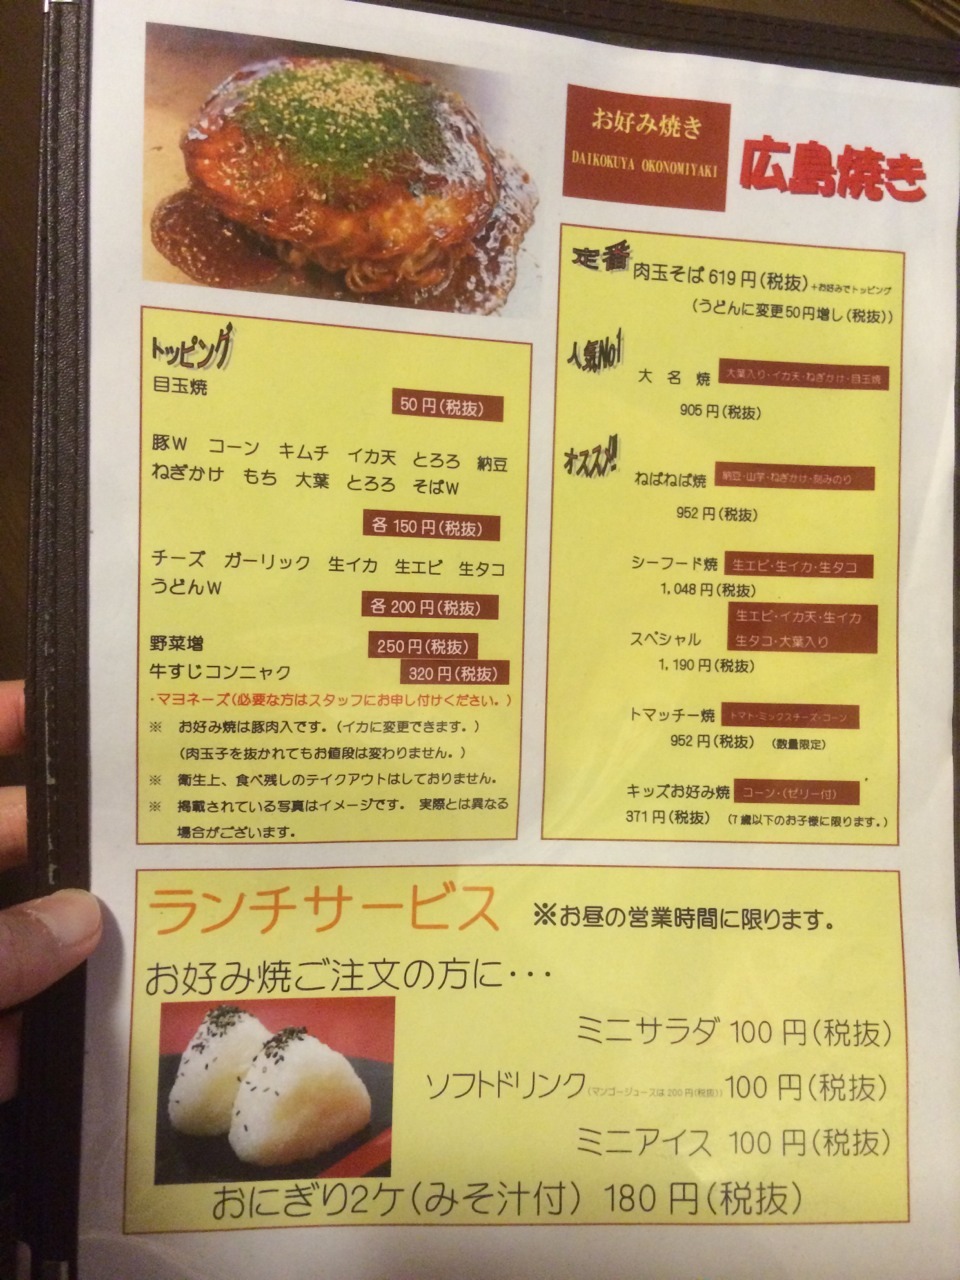 お好み焼き
DAIKOKUYA OKONOMIYAKI
広島焼き
定番
肉玉そば619円(税抜)+お好みでトッピング
(うどんに変更50円増し(税抜))
人気No1
大名焼 大葉入り・イカ天・ねぎかけ・目玉焼
905円(税抜)
オススメ!!
ねばねば焼 納豆・山芋・ねぎかけ・刻みのり
952円(税抜)
シーフード焼 生エビ・生イカ・生タコ
1,048円(税抜)
スペシャル 生エビ・イカ天・生イカ
生タコ・大葉入り
1,190円(税抜)
トマッチー焼 トマト・ミックスチーズ・コーン
952円(税抜) (数量限定)
キッズお好み焼 コーン・(ゼリー付)
371円(税抜) (7歳以下のお子様に限ります。)
トッピング
目玉焼
50円(税抜)
豚W コーン キムチ イカ天 とろろ 納豆
ねぎかけ もち 大葉 とろろ そばW
各150円(税抜)
チーズ ガーリック 生イカ 生エビ 生タコ
うどんW
各200円(税抜)
野菜増 250円(税抜)
牛すじコンニャク 320円(税抜)
・マヨネーズ(必要な方はスタッフにお申し付けください。)
※ お好み焼は豚肉入です。(イカに変更できます。)
(肉玉子を抜かれてもお値段は変わりません。)
※ 衛生上、食べ残しのテイクアウトはしておりません。
※ 掲載されている写真はイメージです。 実際とは異なる
場合がございます。
ランチサービス ※お昼の営業時間に限ります。
お好み焼ご注文の方に・・・
ミニサラダ 100円(税抜)
ソフトドリンク(マンゴージュースは200円(税抜)) 100円(税抜)
ミニアイス 100円(税抜)
おにぎり2ケ(みそ汁付) 180円(税抜)